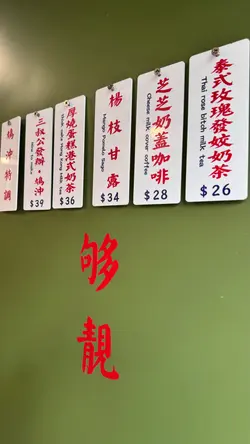 泰式玫瑰發姣奶茶
Thai rose bitch milk tea
$26
芝芝奶蓋咖啡
Cheese milk cover coffee
$28
楊枝甘露
Mango Pomelo Sago
$34
厚燒蛋糕港式奶茶
$36
三叔公發辦鳩沖
$39
鳩沖特調
夠靚